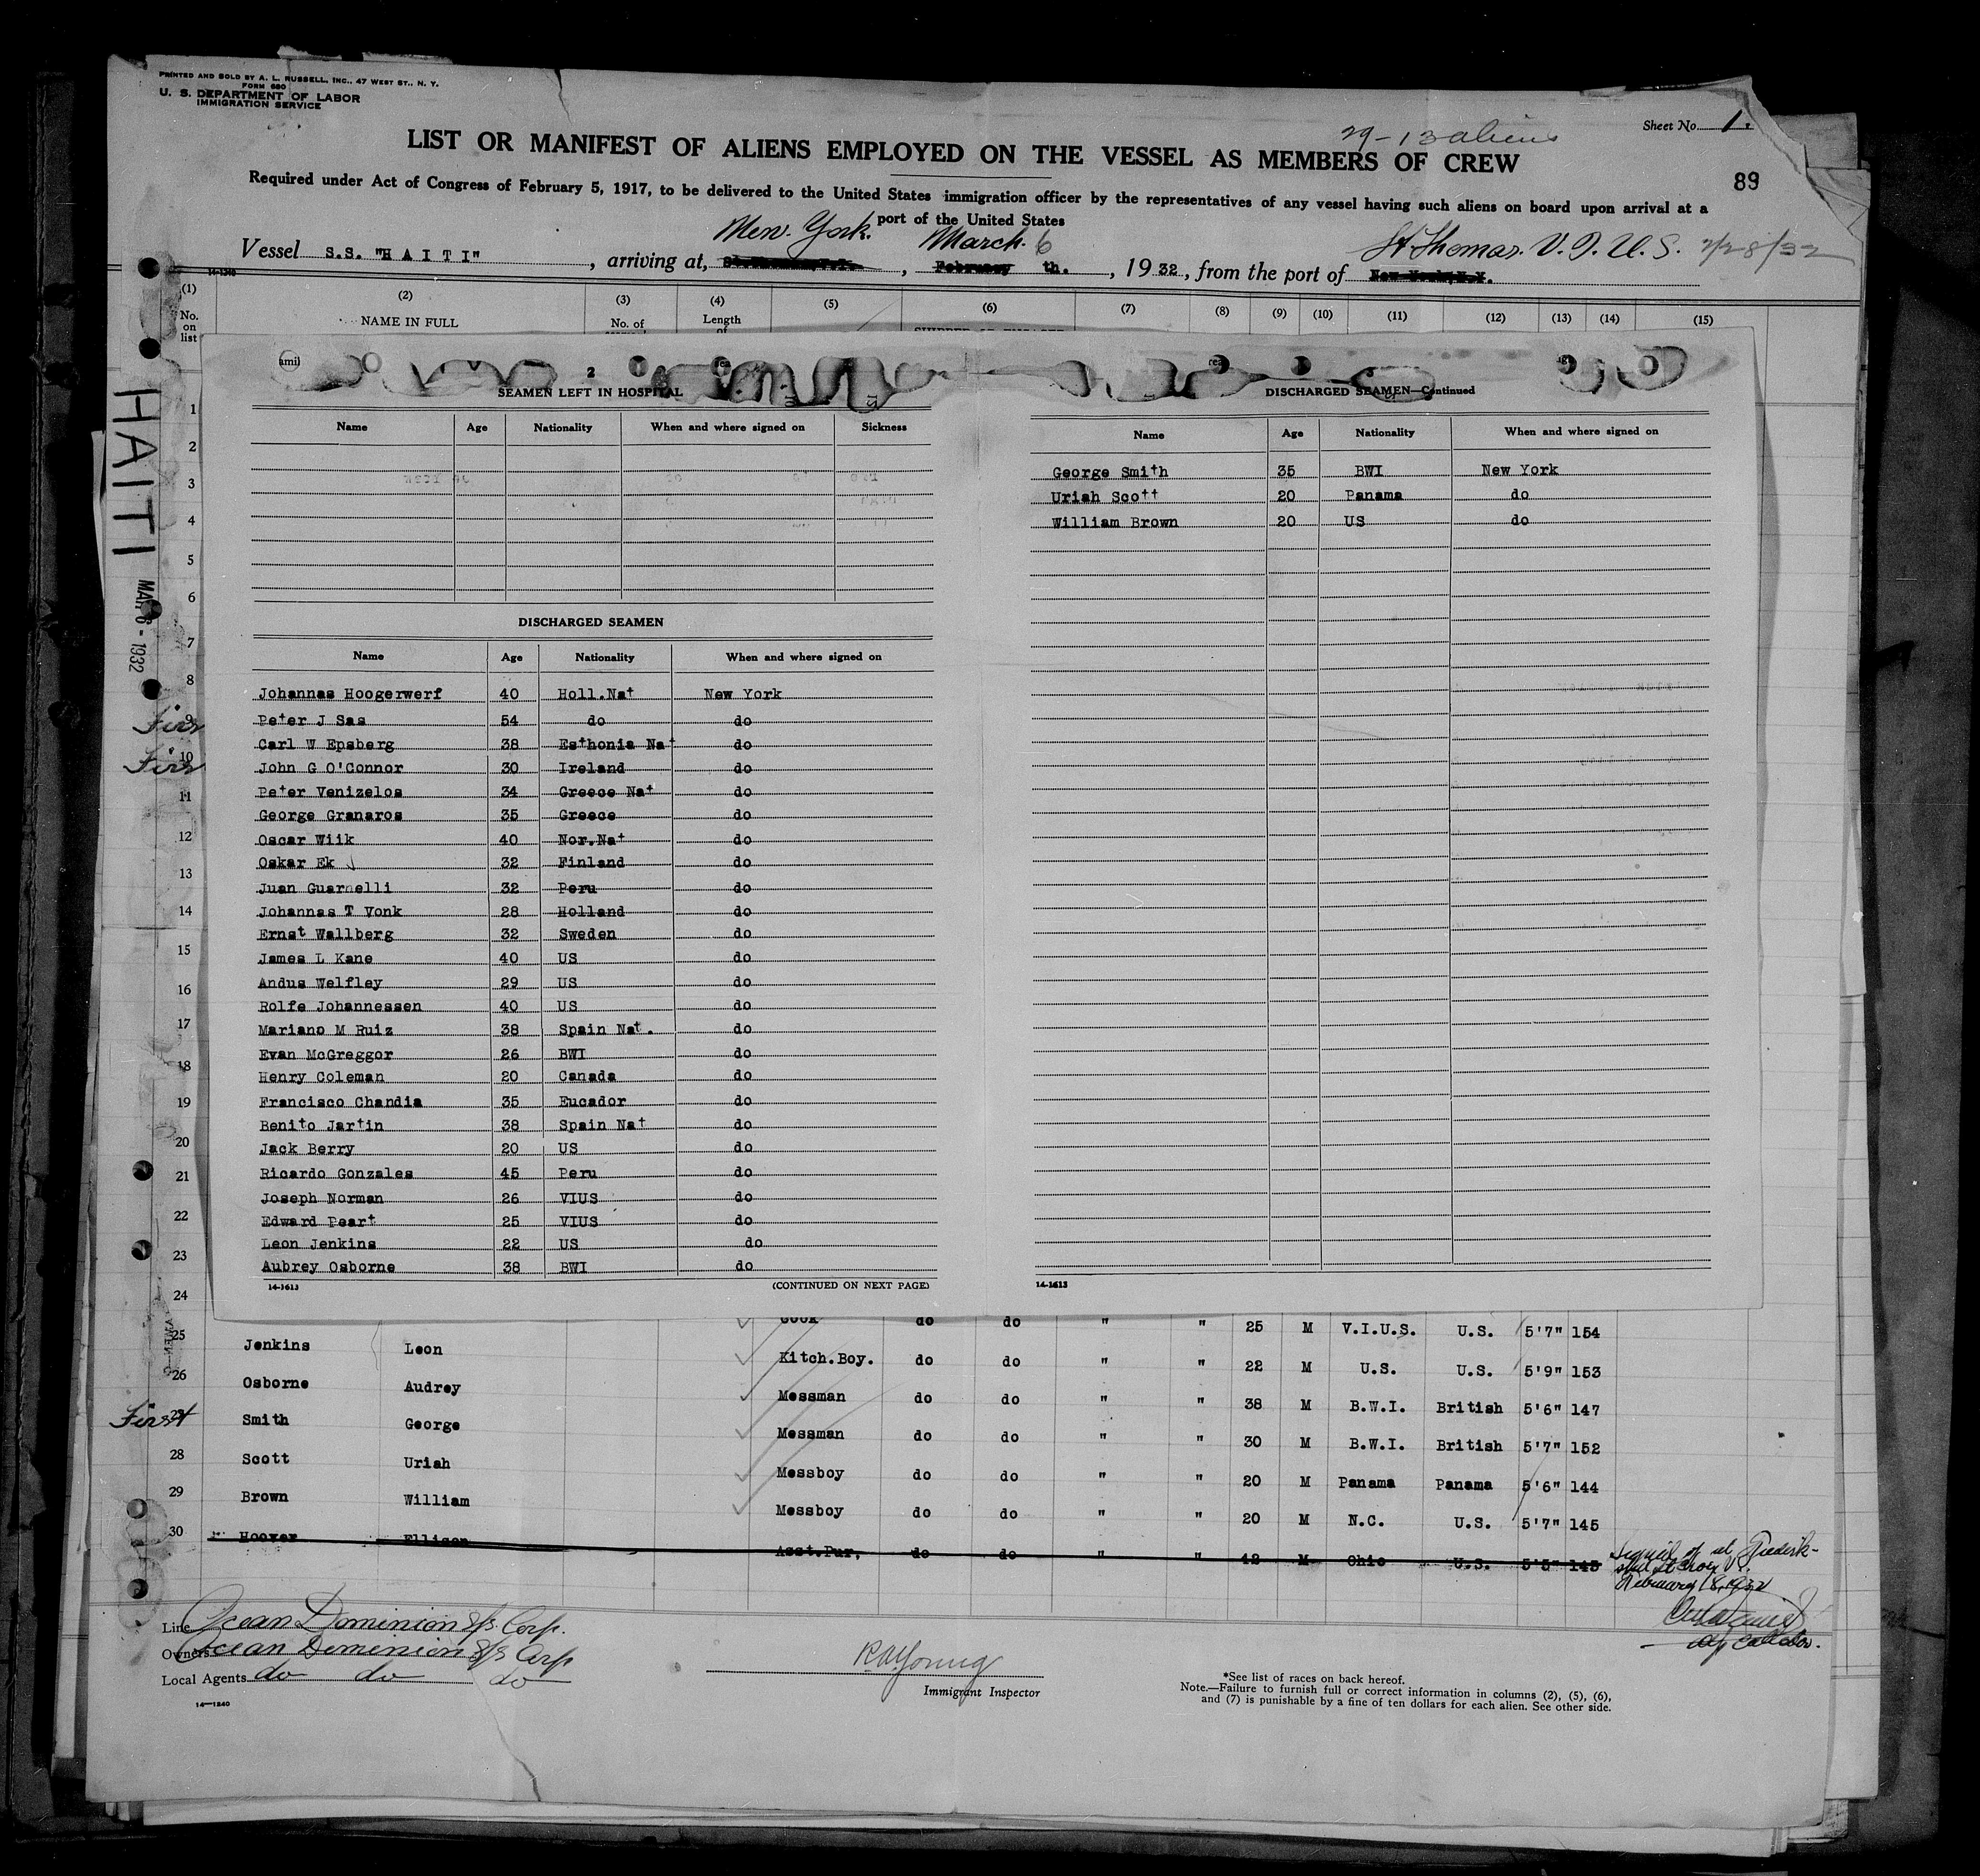 PRINTED AND SOLD BY A. L. RUSSELL, INC., 47 WEST ST., N. Y.
FORM 680
U. S. DEPARTMENT OF LABOR
IMMIGRATION SERVICE
29-13 aliens
Sheet No. 1.
LIST OR MANIFEST OF ALIENS EMPLOYED ON THE VESSEL AS MEMBERS OF CREW
89
Required under Act of Congress of February 5, 1917, to be delivered to the United States immigration officer by the representatives of any vessel having such aliens on board upon arrival at a
port of the United States
New York. March. 6 St Thomas. V. I. U. S. 2/28/32
Vessel S.S. "HAITI", arriving at, February th., 1932, from the port of
14-1240
(1) (2) (3) (4) (5) (6) (7) (8) (9) (10) (11) (12) (13) (14) (15)
No. on list NAME IN FULL No. of Length of
HAITI
MAR 6 - 1932
2
SEAMEN LEFT IN HOSPITAL
Name Age Nationality When and where signed on Sickness
DISCHARGED SEAMEN
Name Age Nationality When and where signed on
Johannas Hoogerwerf 40 Holl.Nat New York
Peter J Sas 54 do do
Carl W Epsberg 38 Esthonia Nat do
John G O'Connor 30 Ireland do
Peter Venizelos 34 Greece Nat do
George Granaros 35 Greece do
Oscar Wiik 40 Nor.Nat do
Oskar Ek 32 Finland do
Juan Guarnelli 32 Peru do
Johannas T Vonk 28 Holland do
Ernst Wallberg 32 Sweden do
James L Kane 40 US do
Andus Welfley 29 US do
Rolfe Johannessen 40 US do
Mariano M Ruiz 38 Spain Nat. do
Evan McGreggor 26 BWI do
Henry Coleman 20 Canada do
Francisco Chandia 35 Eucador do
Benito Jartin 38 Spain Nat do
Jack Berry 20 US do
Ricardo Gonzales 45 Peru do
Joseph Norman 26 VIUS do
Edward Peart 25 VIUS do
Leon Jenkins 22 US do
Aubrey Osborne 38 BWI do
14-1613 (CONTINUED ON NEXT PAGE)
DISCHARGED SEAMEN—Continued
Name Age Nationality When and where signed on
George Smith 35 BWI New York
Uriah Scott 20 Panama do
William Brown 20 US do
14-1613
1
2
3
4
5
6
7
8
9
10
11
12
13
14
15
16
17
18
19
20
21
22
23
24
Cook do do " " 25 M V.I.U.S. U.S. 5'7" 154
25 Jenkins Leon Kitch.Boy. do do " " 22 M U.S. U.S. 5'9" 153
26 Osborne Audrey Messman do do " " 38 M B.W.I. British 5'6" 147
First 27 Smith George Messman do do " " 30 M B.W.I. British 5'7" 152
28 Scott Uriah Messboy do do " " 20 M Panama Panama 5'6" 144
29 Brown William Messboy do do " " 20 M N.C. U.S. 5'7" 145
30 Hoover Ellison Asst.Pur. do do " " 42 M Ohio U.S. 5'5" 145
Signed off at Frederik-
sted St Croix V.I.
February 18, 1932
Line Ocean Dominion S/S. Corp.
Owners Ocean Dominion S/S Corp
Local Agents do do do
14—1240
RAYoung
Immigrant Inspector
*See list of races on back hereof.
Note.—Failure to furnish full or correct information in columns (2), (5), (6),
and (7) is punishable by a fine of ten dollars for each alien. See other side.